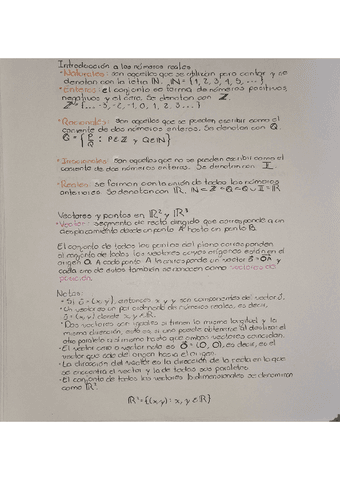 Introducción a los números reales
• Naturales: son aquellos que se utilizan para contar y se
denotan con la letra ℕ. ℕ = {1, 2, 3, 4, 5, ...}
• Enteros: el conjunto se forma de números positivos,
negativos y el cero. Se denotan con ℤ.
• Racionales: son aquellos que se pueden escribir como el
cociente de dos números enteros. Se denotan con ℚ.
ℚ = {p/q : p∈ℤ y q∈ℕ}
• Irracionales: son aquellos que no se pueden escribir como el
cociente de dos números enteros. Se denotan con 𝕀.
• Reales: se forman con la unión de todos los números
anteriores. Se denotan con ℝ.
Vectores y puntos en ℝ² y ℝ³
• Vector: segmento de recta dirigido que corresponde a un
desplazamiento desde un punto A hasta un punto B.
El conjunto de todos los puntos del plano corresponden
al conjunto de todos los vectores cuyos orígenes están en el
origen O. A cada punto A le corresponde un vector
cada uno de estos también se conocen como vectores de
posición.
Notas:
entonces x y y son componentes del vector
• Un vector es un par ordenado de números reales, es decir,
• Dos vectores son iguales si tienen la misma longitud y la
misma dirección, esto es, si uno puede obtenerse al deslizar el
otro paralelo a sí mismo hasta que ambos vectores coincidan.
• El vector cero o vector nulo es 0 = (0, 0), es decir, es el
vector que sale del origen hasta el origen.
• La dirección del vector es la dirección de la recta en la que
se encuentra el vector y la de todos sus paralelos.
• El conjunto de todos los vectores bidimensionales se denominan
como ℝ².
ℝ² = {(x,y) : x, y ∈ ℝ}